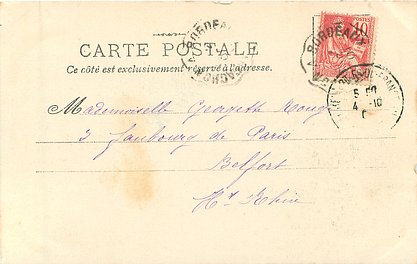 CARTE POSTALE
Ce côté est exclusivement réservé à l'adresse.
BORDEAUX
BORDEAUX
10
5 50
4 -10
Mademoiselle Georgette Rouge
3 faubourg de Paris
Belfort
Ht Rhin